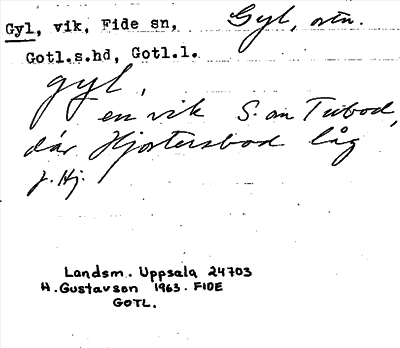 Gyl, vik, Fide sn, Gyl, otn.
Gotl.s.hd, Gotl.l.
gyl,
en vik S. om Tubod,
där Hjortersbod låg
J. Hj.
Landsm. Uppsala 24703
H. Gustavson 1963. FIDE
GOTL.